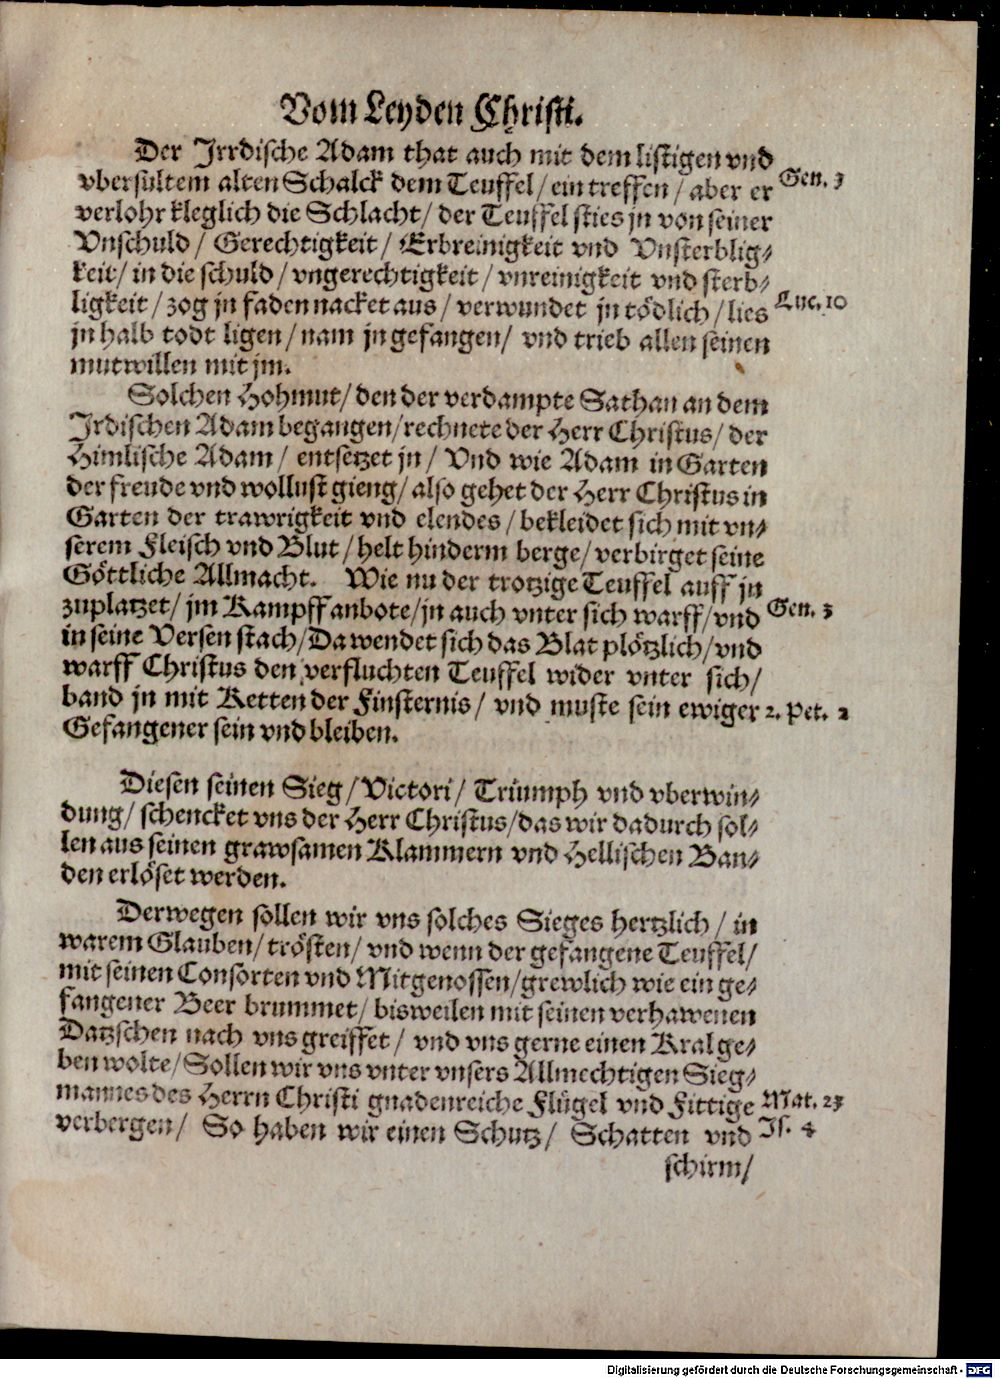 Vom Leyden Christi.
Der Jrrdische Adam that auch mit dem listigen vnd
vbersültem alten Schalck dem Teuffel / ein treffen / aber er Gen. 3
verlohr kleglich die Schlacht / der Teuffel sties jn von seiner
Vnschuld / Gerechtigkeit / Erbreinigkeit vnd Vnsterblig⸗
keit / in die schuld / vngerechtigkeit / vnreinigkeit vnd sterb⸗
ligkeit / zog jn faden nacket aus / verwundet jn tödlich / lies Luc. 10
jn halb todt ligen / nam jn gefangen / vnd trieb allen seinen
mutwillen mit jm.
Solchen Hohmut / den der verdampte Sathan an dem
Jrdischen Adam begangen / rechnete der Herr Christus / der
Himlische Adam / entsetzet jn / Vnd wie Adam in Garten
der freude vnd wollust gieng / also gehet der Herr Christus in
Garten der trawrigkeit vnd elendes / bekleidet sich mit vn⸗
serem Fleisch vnd Blut / helt hinderm berge / verbirget seine
Göttliche Allmacht. Wie nu der trotzige Teuffel auff jn
zuplatzet / jm Kampff anbote / jn auch vnter sich warff / vnd Gen. 3
in seine Versen stach / Da wendet sich das Blat plötzlich / vnd
warff Christus den verfluchten Teuffel wider vnter sich /
band jn mit Ketten der Finsternis / vnd muste sein ewiger 2. Pet. 2
Gefangener sein vnd bleiben.
Diesen seinen Sieg / Victori / Triumph vnd vberwin⸗
dung / schencket vns der Herr Christus / das wir dadurch sol⸗
len aus seinen grawsamen Klammern vnd Hellischen Ban⸗
den erlöset werden.
Derwegen sollen wir vns solches Sieges hertzlich / in
warem Glauben / trösten / vnd wenn der gefangene Teuffel /
mit seinen Consorten vnd Mitgenossen / grewlich wie ein ge⸗
fangener Beer brummet / bisweilen mit seinen verhawenen
Datzschen nach vns greiffet / vnd vns gerne einen Kral ge⸗
ben wolte / Sollen wir vns vnter vnsers Allmechtigen Sieg⸗
mannes des Herrn Christi gnadenreiche Flügel vnd Fittige Mat. 23
verbergen / So haben wir einen Schutz / Schatten vnd Js. 4
schirm /
Digitalisierung gefördert durch die Deutsche Forschungsgemeinschaft - DFG